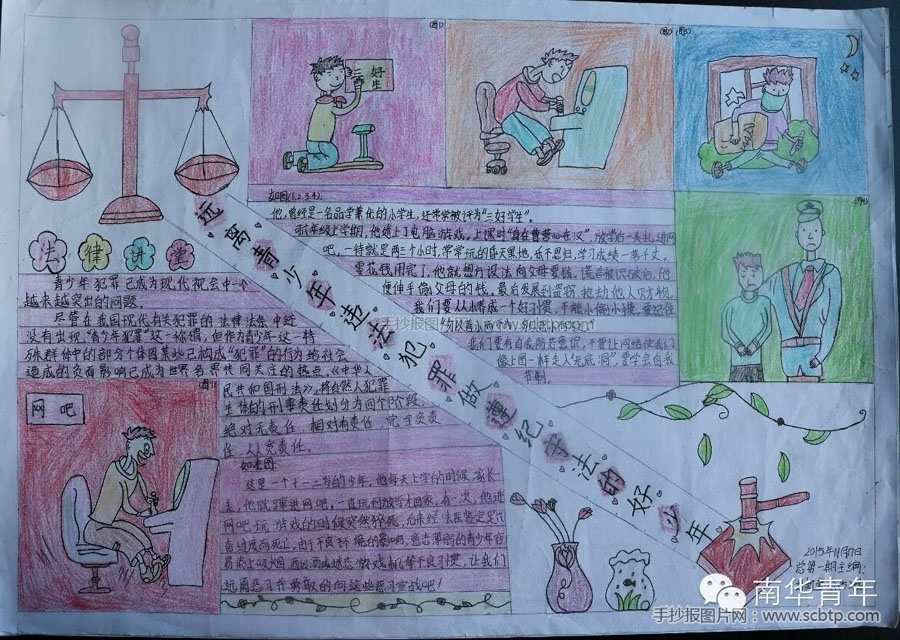 远离青少年违法犯罪做遵纪守法的好少年
法律讲堂
青少年犯罪已成为现代社会中一个
越来越突出的问题。
尽管在我国现代有关犯罪的法律法条中还
没有出现"青少年犯罪"这一称谓,但作为青少年这一特
殊群体中的部分个体因某些已构成"犯罪"的行为给社会
造成的负面影响已成为世界各界共同关注的热点。《中华人
民共和国刑法》,将自然人犯罪
主体的刑事责任划分为四个阶段
绝对无责任、相对有责任、完全负责
任、人人究责任。
如左图
这里一个十一二岁的少年,他每天上学的时候,家长
走,他就蹿进网吧,一直玩到放学才回家,有一次,他进
网吧玩游戏的时候突然猝死
由于不良环境的影响,意志薄弱的青少年容
易
远离恶习并勇敢的向这些恶习宣战吧!
网吧
三好生
如图(1、2、3、4)。
他,曾经是一名品学兼优的小学生,还常常被评为"三好学生"。
可六年级上学期,他迷上了电脑游戏。上课时"身在曹营心在汉",放学后一头扎进网
吧,一待就是两三个小时,常常玩的昏天黑地,乐不思归,学习成绩一落千丈。
零花钱用完了,他就想方设法向父母要钱,谎言被识破后,他
便伸手偷父母的钱。最后发展到盗窃、抢劫他人财物。
我们要从小养成一个好习惯,不能小偷小摸,要记住
"勿以善小而不为,勿以恶小而为之"
我们要有自我防范意识,不要让网络使我们
像上图一样走入"无底洞",要学会自我
节制。
2015年11月17日
总第一期主编
南华青年
手抄报图片网:www.scbtp.com
手抄报图片网 www.scbtp.com